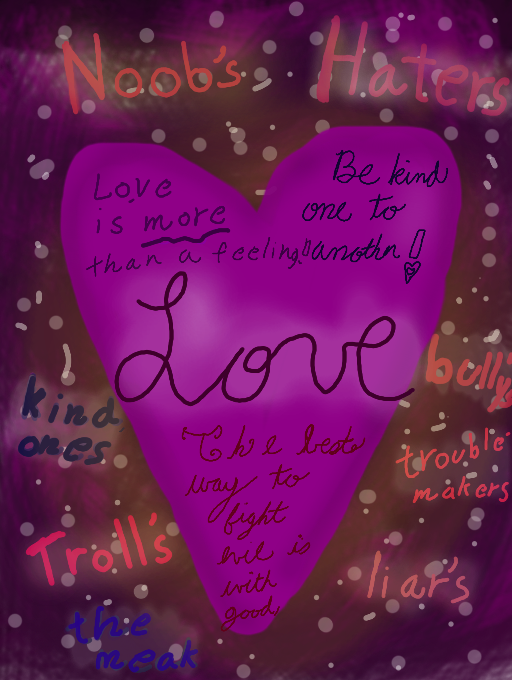 Noob's Haters
Love
is more
than a feeling!!
Be kind
one to
anothr!
Love
bully's
kind
ones
The best
way to
fight
evil is
with
good
trouble-
makers
Troll's
liar's
the
meak